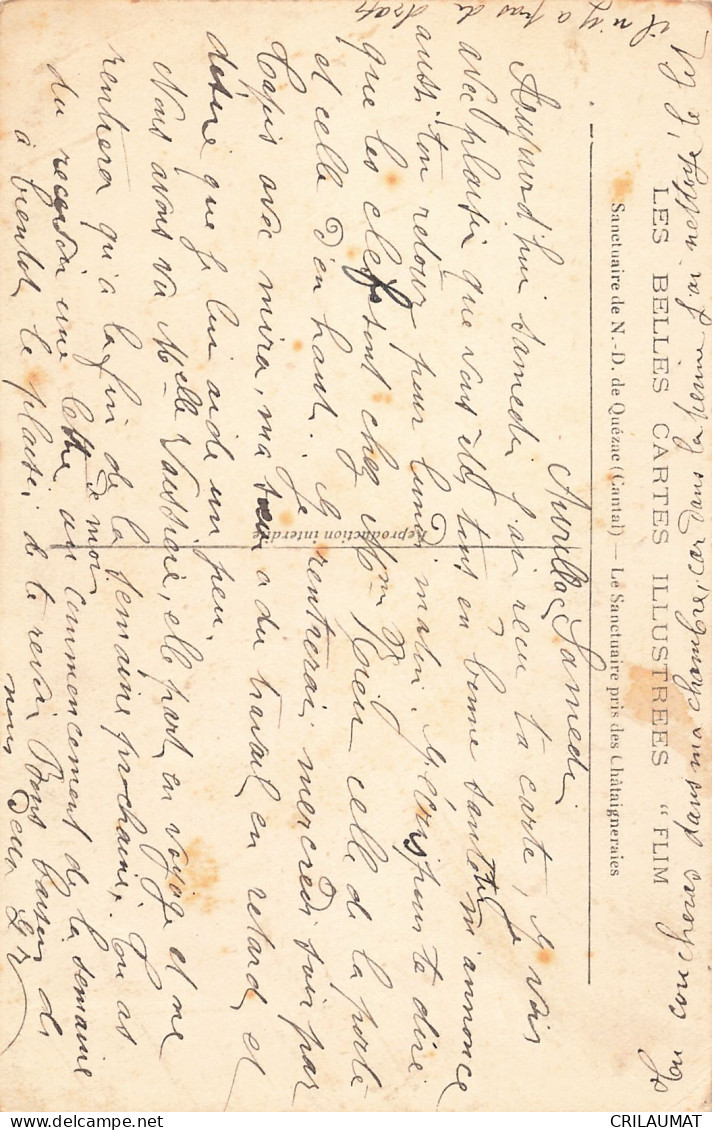 LES BELLES CARTES ILLUSTREES “ FLIM
Sanctuaire de N.-D. de Quézac (Cantal) — Le Sanctuaire pris des Châtaigneraies
Reproduction interdite
Aurillac Samedi
Aujourd'hui samedi j'ai reçu ta carte, je vois
avec plaisir que vous êtes tous en bonne santé tu m'annonce
aussi ton retour pour lundi matin. Je t'écris pour te dire
que les clefs sont chez Mme celle de la porte
et celle d'en haut. Je rentrerai mercredi soir par
Capis avec mira, ma sœur a du travail en retard et
désire que je lui aide un peu.
Nous avons vu Melle Vaissière, elle part en voyage et ne
rentrera qu'à la fin de la semaine prochaine. Tu as
du recevoir une lettre de moi au commencement de la semaine
à bientot le plaisir de te revoir Bons baisers de
nous deux
Tu coucheras dans ma chambre, car dans la tienne j'ai nettoyé le
il n'y a pas de draps
CRILAUMAT